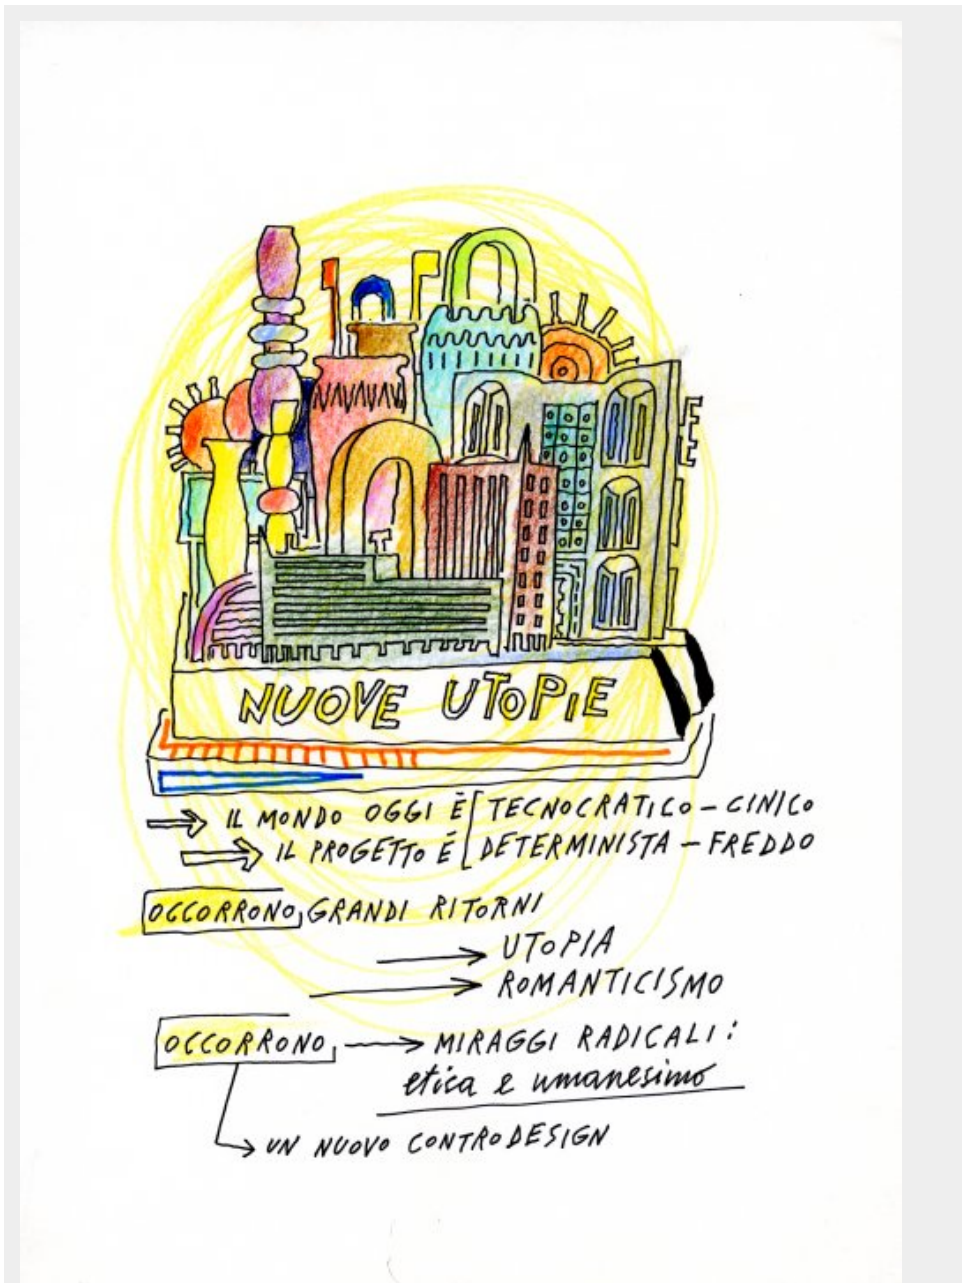 NUOVE UTOPIE
IL MONDO OGGI È [TECNOCRATICO – CINICO
IL PROGETTO È [DETERMINISTA – FREDDO
OCCORRONO, GRANDI RITORNI
UTOPIA
ROMANTICISMO
OCCORRONO, MIRAGGI RADICALI:
etica e umanesimo
UN NUOVO CONTRODESIGN